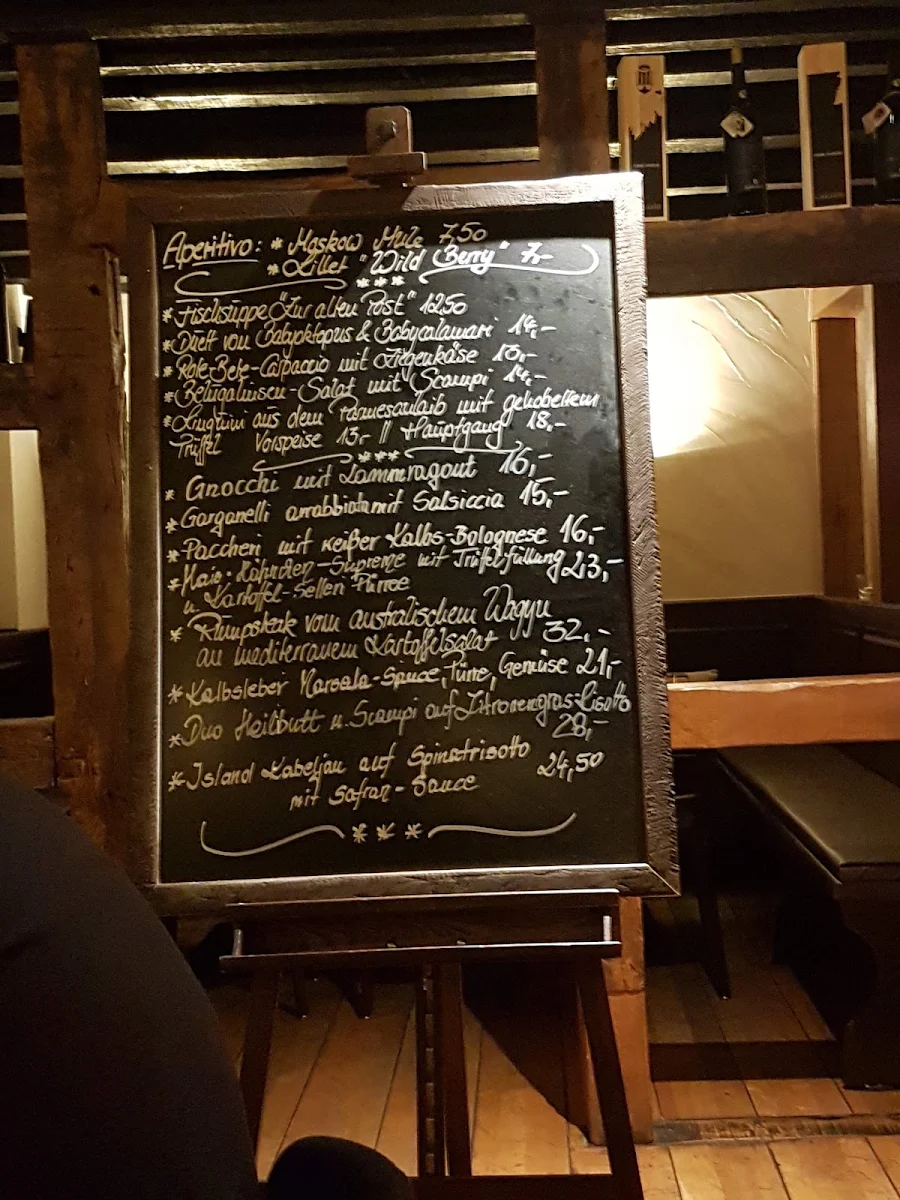 Aperitivo: * Moskow Mule 7,50
* Lillet "Wild Berry" 7,-
* * *
* Fischsuppe "Zur alten Post" 12,50
* Duett von Babyoktopus & Babycalamari 14,-
* Rote-Bete-Carpaccio mit Ziegenkäse 13,-
* Belugalinsen-Salat mit Scampi 14,-
* Linguini aus dem Parmesanlaib mit gehobeltem
Trüffel Vorspeise 13,- // Hauptgang 18,-
* * *
* Gnocchi mit Lammragout 16,-
* Garganelli arrabbiata mit Salsiccia 15,-
* Paccheri mit weißer Kalbs-Bolognese 16,-
* Mais-Hähnchen-Supreme mit Trüffelfüllung 23,-
u. Kartoffel-Sellerie Pürree
* Rumpsteak vom australischem Wagyu
an mediterranem Kartoffelsalat 32,-
* Kalbsleber Marsala-Sauce, Pürre, Gemüse 21,-
* Duo Heilbutt u. Scampi auf Zitronengras-Risotto
28,-
* Island Kabeljau auf Spinatrisotto
mit Safran-Sauce 24,50
* * *